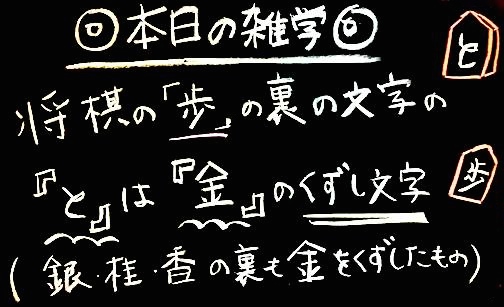 ◎本日の雑学◎
と
将棋の「歩」の裏の文字の
『と』は『金』のくずし文字
歩
(銀・桂・香の裏も金をくずしたもの)